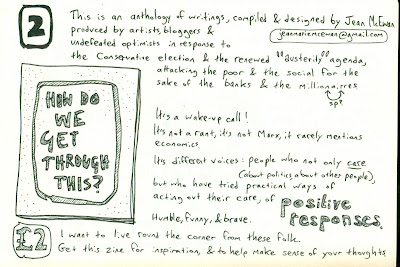 2
This is an anthology of writings, compiled & designed by Jean McEwan
jeanmariemcewan@gmail.com
produced by artists, bloggers &
undefeated optimists in response to
the Conservative election & the renewed "austerity" agenda,
attacking the poor & the social for the
sake of the banks & the millionairres
sp?
HOW DO
WE
GET
THROUGH
THIS?
It's a wake-up call!
It's not a rant, it's not Marx, it rarely mentions
economics.
It's different voices: people who not only care
(about politics, about other people),
but who have tried practical ways of
acting out their care, of positive
responses.
Humble, funny, & brave.
£2
I want to live round the corner from these folk.
Get this zine for inspiration, & to help make sense of your thoughts